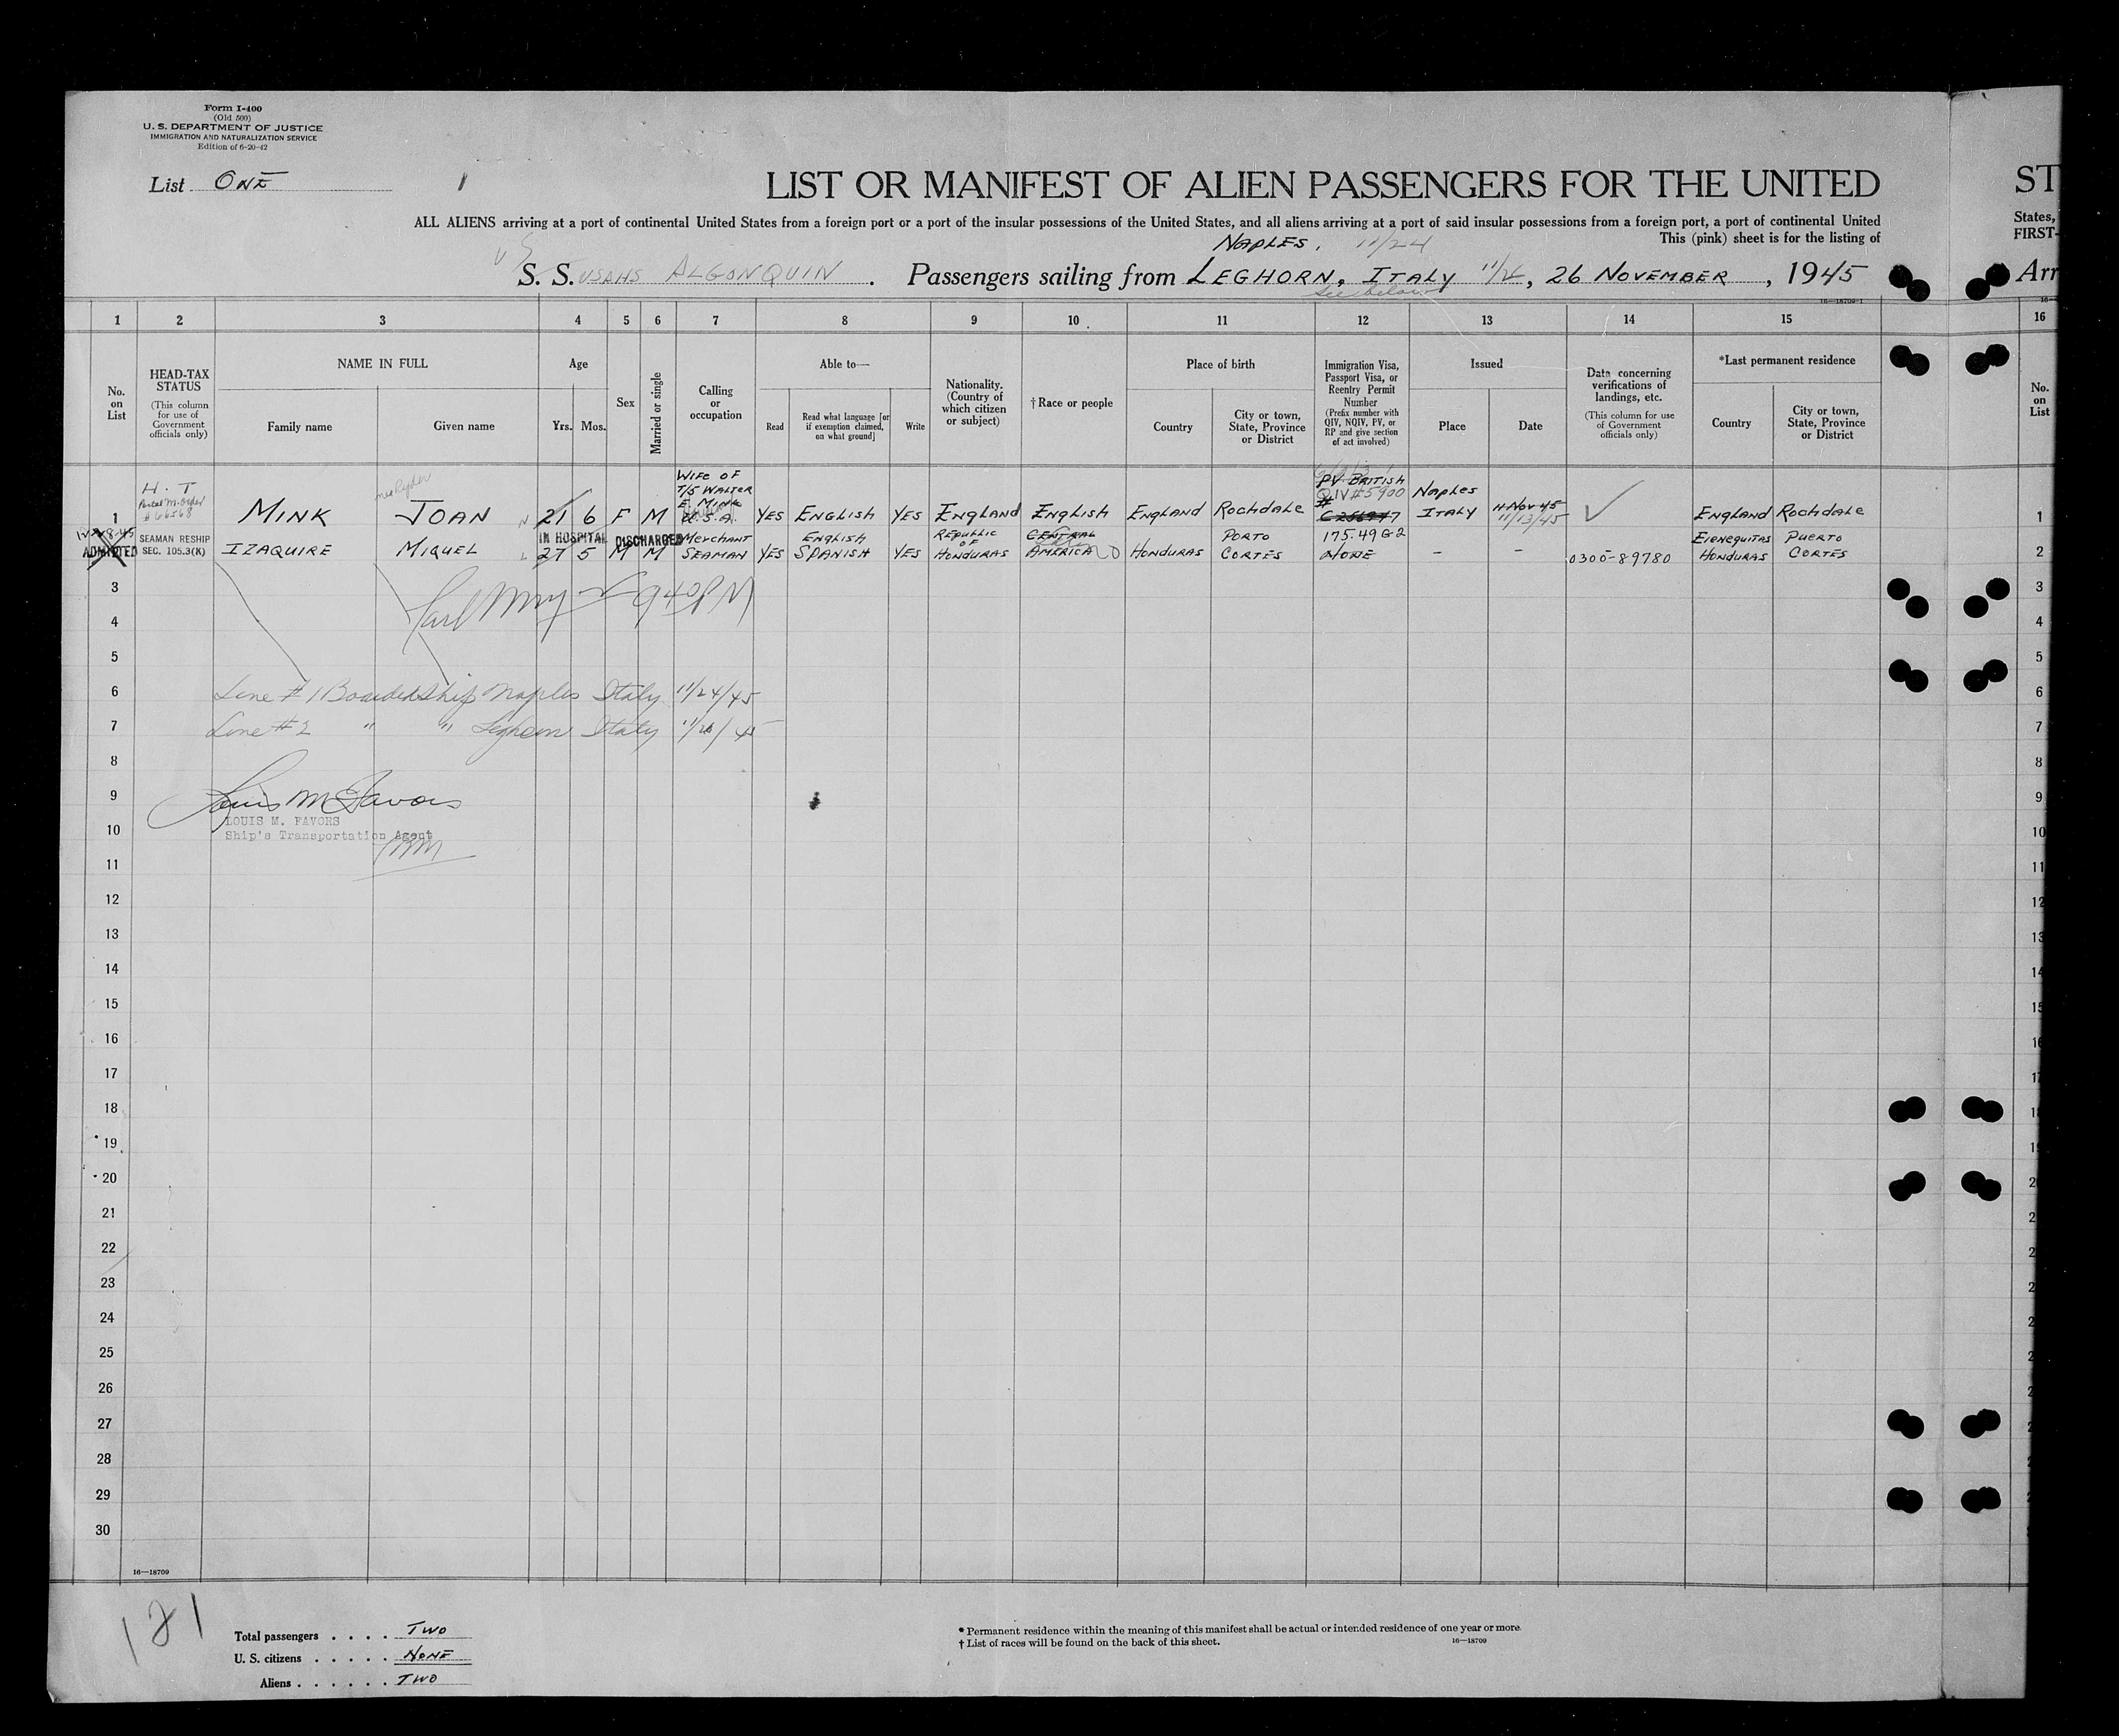 Form I-400
(Old 500)
U. S. DEPARTMENT OF JUSTICE
IMMIGRATION AND NATURALIZATION SERVICE
Edition of 6-20-42
List ONE 1
LIST OR MANIFEST OF ALIEN PASSENGERS FOR THE UNITED
ST
ALL ALIENS arriving at a port of continental United States from a foreign port or a port of the insular possessions of the United States, and all aliens arriving at a port of said insular possessions from a foreign port, a port of continental United
States,
This (pink) sheet is for the listing of
FIRST-
NAPLES, 11/24
S. S. USAHS ALGONQUIN. Passengers sailing from LEGHORN, ITALY, 26 NOVEMBER, 1945
Arr
see below
16—18709-1
1 2 3 4 5 6 7 8 9 10 11 12 13 14 15 16
No. on List
HEAD-TAX STATUS
(This column for use of Government officials only)
NAME IN FULL
Family name
Given name
Age
Yrs. Mos.
Sex
Married or single
Calling or occupation
Able to—
Read
Read what language [or if exemption claimed, on what ground]
Write
Nationality. (Country of which citizen or subject)
†Race or people
Place of birth
Country
City or town, State, Province or District
Immigration Visa, Passport Visa, or Reentry Permit Number
(Prefix number with QIV, NQIV, PV, or RP and give section of act involved)
Issued
Place
Date
Data concerning verifications of landings, etc.
(This column for use of Government officials only)
*Last permanent residence
Country
City or town, State, Province or District
No. on List
1 H. T. Postal M. Order #66568 MINK JOAN 21 6 F M WIFE OF T/5 WALTER E. MINK U.S.A. YES ENGLISH YES ENGLAND ENGLISH ENGLAND ROCHDALE PV BRITISH QIV #5900 # Naples ITALY 11/13/45 ENGLAND ROCHDALE 1
ADMITTED
SEAMAN RESHIP SEC. 105.3(K)
IN HOSPITAL DISCHARGED
IZAQUIRE MIQUEL 27 5 M M MERCHANT SEAMAN YES ENGLISH SPANISH YES REPUBLIC OF HONDURAS CENTRAL AMERICA HONDURAS PORTO CORTES 175.49 G-2 NONE - - 0300-89780 HONDURAS PUERTO CORTES 2
3 940PM 3
4 4
5 5
6 Line #1 Boarded Ship Naples Italy 11/24/45 6
7 Line #2 " " Leghorn Italy 11/26/45 7
8 8
9 Louis M Favors 9
LOUIS M. FAVORS
10 Ship's Transportation Agent 10
11 11
12 12
13 13
14 14
15 15
16 16
17 17
18 18
19 19
20
21
22
23
24
25
26
27
28
29
30
16—18709
181
Total passengers . . . . TWO
U. S. citizens . . . . . NONE
Aliens . . . . . . TWO
* Permanent residence within the meaning of this manifest shall be actual or intended residence of one year or more.
† List of races will be found on the back of this sheet. 16—18709